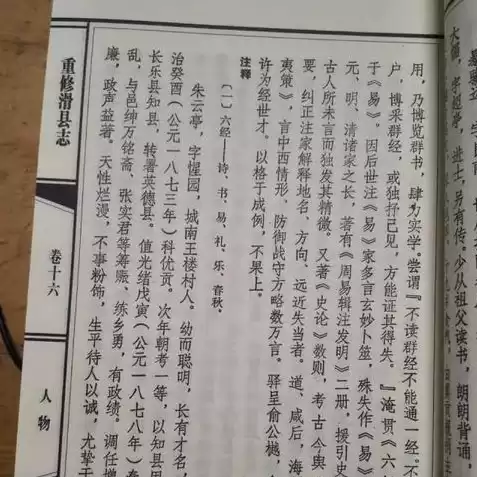 进士，另有传。少从祖父读书，朗朗背诵，
用，乃博览群书，肆为实学。尝谓『不读群经不能通一经。不
户，博采群经，或独抒己见，方能证其得失。』淹贯《六
于《易》。因后世注《易》家多言玄妙卜筮，殊失作《易》
元、明、清诸家之长，著有《周易辑注发明》二册，援引史
古人所未言而独发其精微。又著《史论》数则，考古今舆
要，纠正注家解释地名、方向、远近失当者。道、咸后，海
夷策》，言中西情形，防御战守方略数万言。驿呈俞公樾，
许为经世才。以格于成例，不果上。
注释
（一）六经——诗、书、易、礼、乐、春秋。
朱云亭，字惺园，城南王楼村人。幼而聪明，长有才名，
治癸酉（公元一八七三年）科优贡。次年朝考一等，以知县
长乐县知县，转署英德县。值光绪戊寅（公元一八七八年）
乱，与邑绅万铭斋、张实君等筹赈、练乡勇，有政绩。调任增
廉，政声益著。天性烂漫，不事粉饰，生平待人以诚，尤挚于
重修滑县志
卷十六
人物